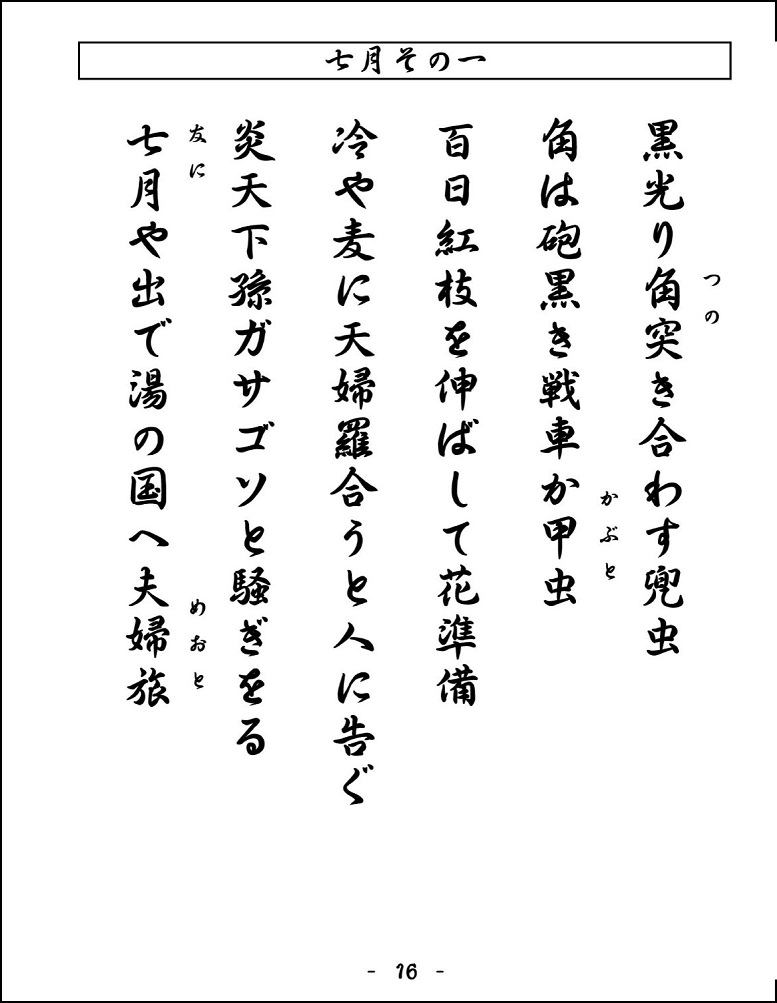 七月その一
つの
黒光り角突き合わす兜虫
かぶと
角は砲黒き戦車か甲虫
百日紅枝を伸ばして花準備
冷や麦に天婦羅合うと人に告ぐ
炎天下孫ガサゴソと騒ぎをる
友に めおと
七月や出で湯の国へ夫婦旅
- 16 -